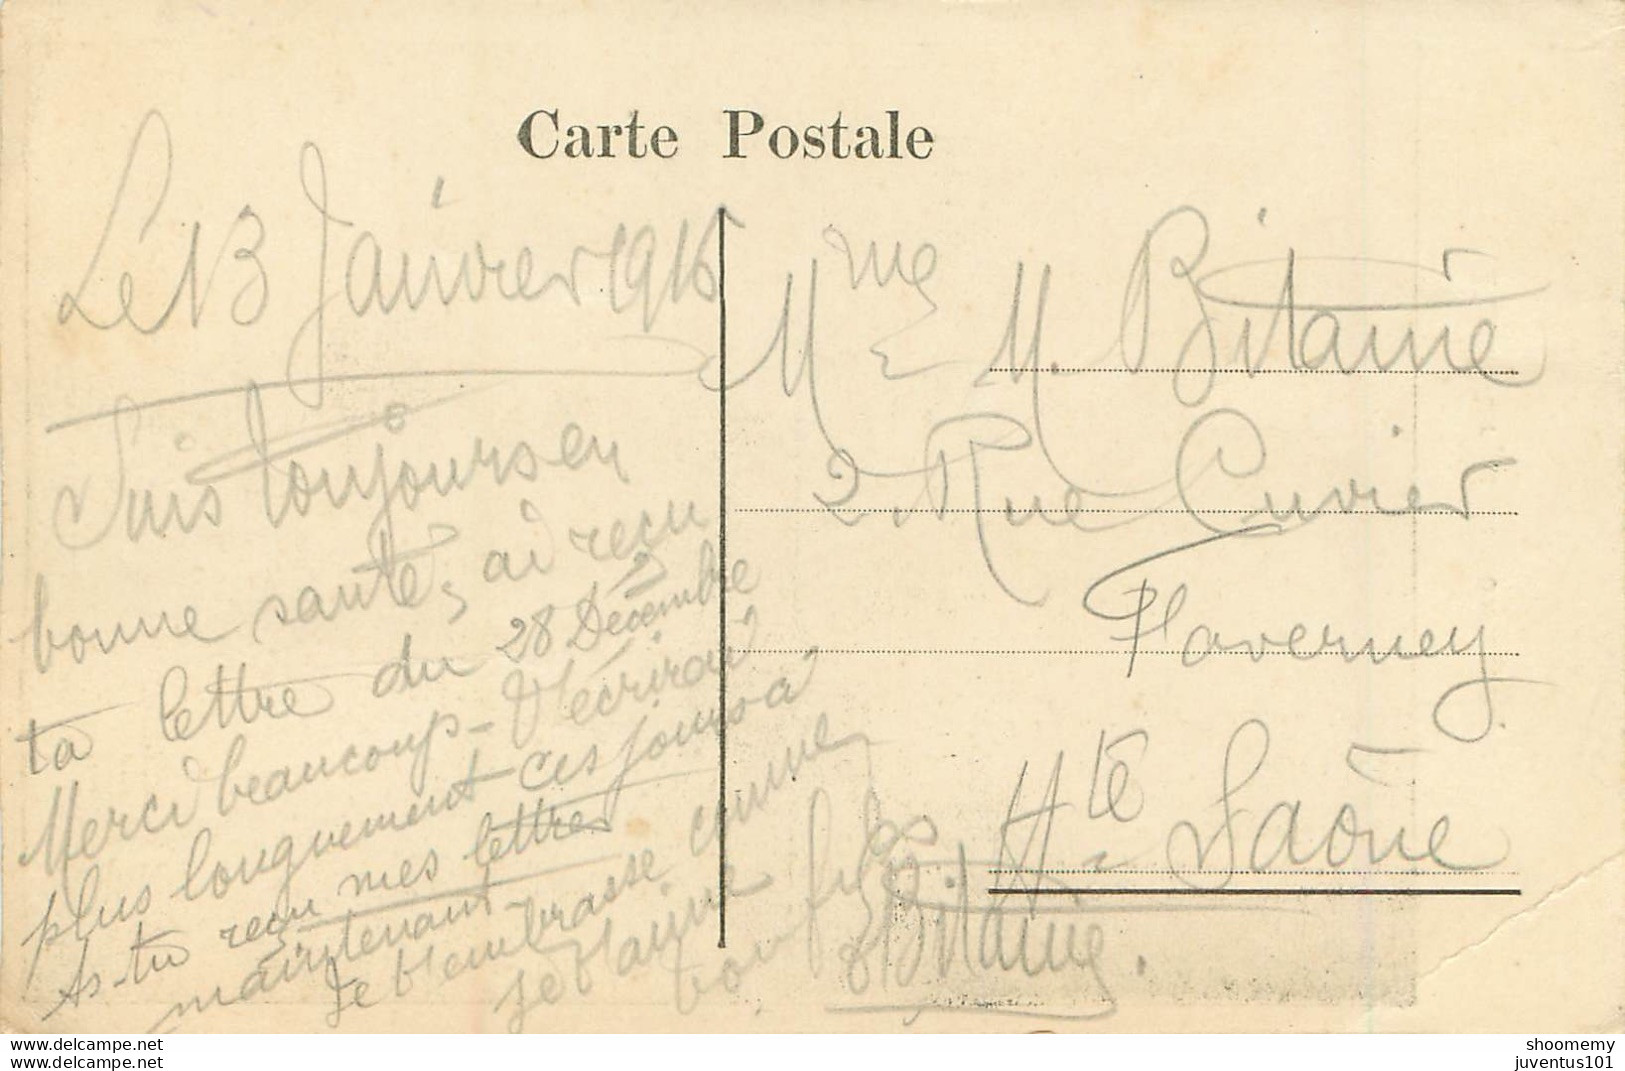 Carte Postale
Le 13 Janvier 1916
Suis toujours en
bonne santé, ai reçu
ta lettre du 28 Décembre
Merci beaucoup - T'écrirai
plus longuement ces jours-ci
As-tu reçu mes lettres
maintenant -
Je t'embrasse comme
je t'aime
ton fils
Bitaine.
Mme M. Bitaine
2 Rue Cuvier
Faverney
Hte Saône
www.delcampe.net
www.delcampe.net
shoomemy
juventus101